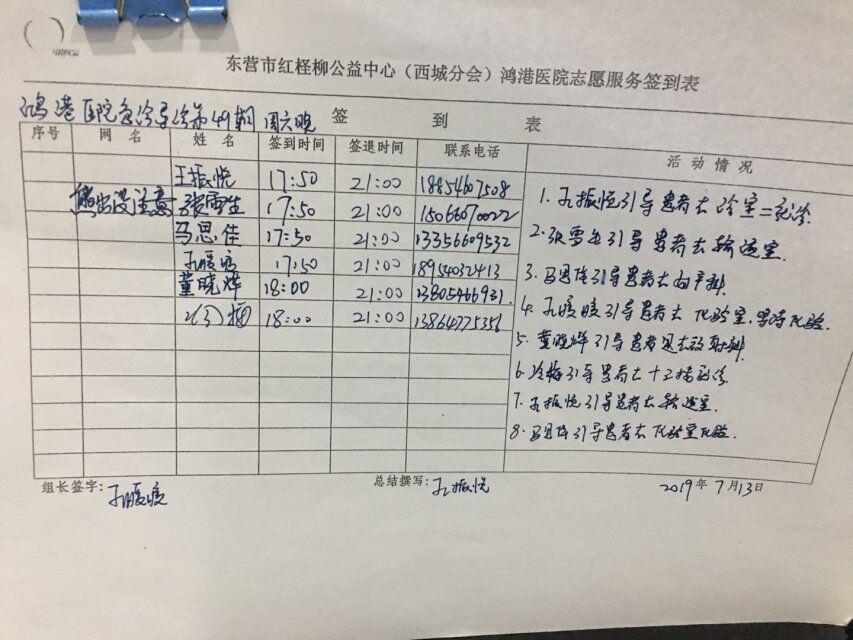 东营市红柽柳公益中心（西城分会）鸿港医院志愿服务签到表
鸿港医院急诊导诊第49期 周六晚 签到表
序号 网名 姓名 签到时间 签退时间 联系电话 活动情况
王振悦 17:50 21:00 18854607508
熊出没注意 张雪生 17:50 21:00 15066070022
马思佳 17:50 21:00 13356609532
孔暖暖 17:50 21:00 18954032413
董晓烨 18:00 21:00 13805466931
梅 18:00 21:00 13864775356
1. 孔振悦引导患者去诊室二就诊.
2. 张雪生引导患者去输送室.
3. 马思佳引导患者去妇产科.
4. 孔暖暖引导患者去化验室,等待化验.
5. 董晓烨引导患者去放射科.
6. 冷梅引导患者去十三楼就诊
7. 孔振悦引导患者去输送室.
8. 马思佳引导患者去化验室化验.
组长签字: 孔暖暖 总结撰写: 孔振悦 2019年7月13日